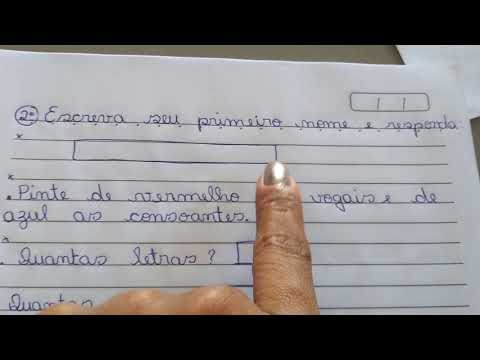 2ª Escreva seu primeiro nome e responda:
Pinte de vermelho vogais e de
azul as consoantes.
Quantas letras?
Quantas